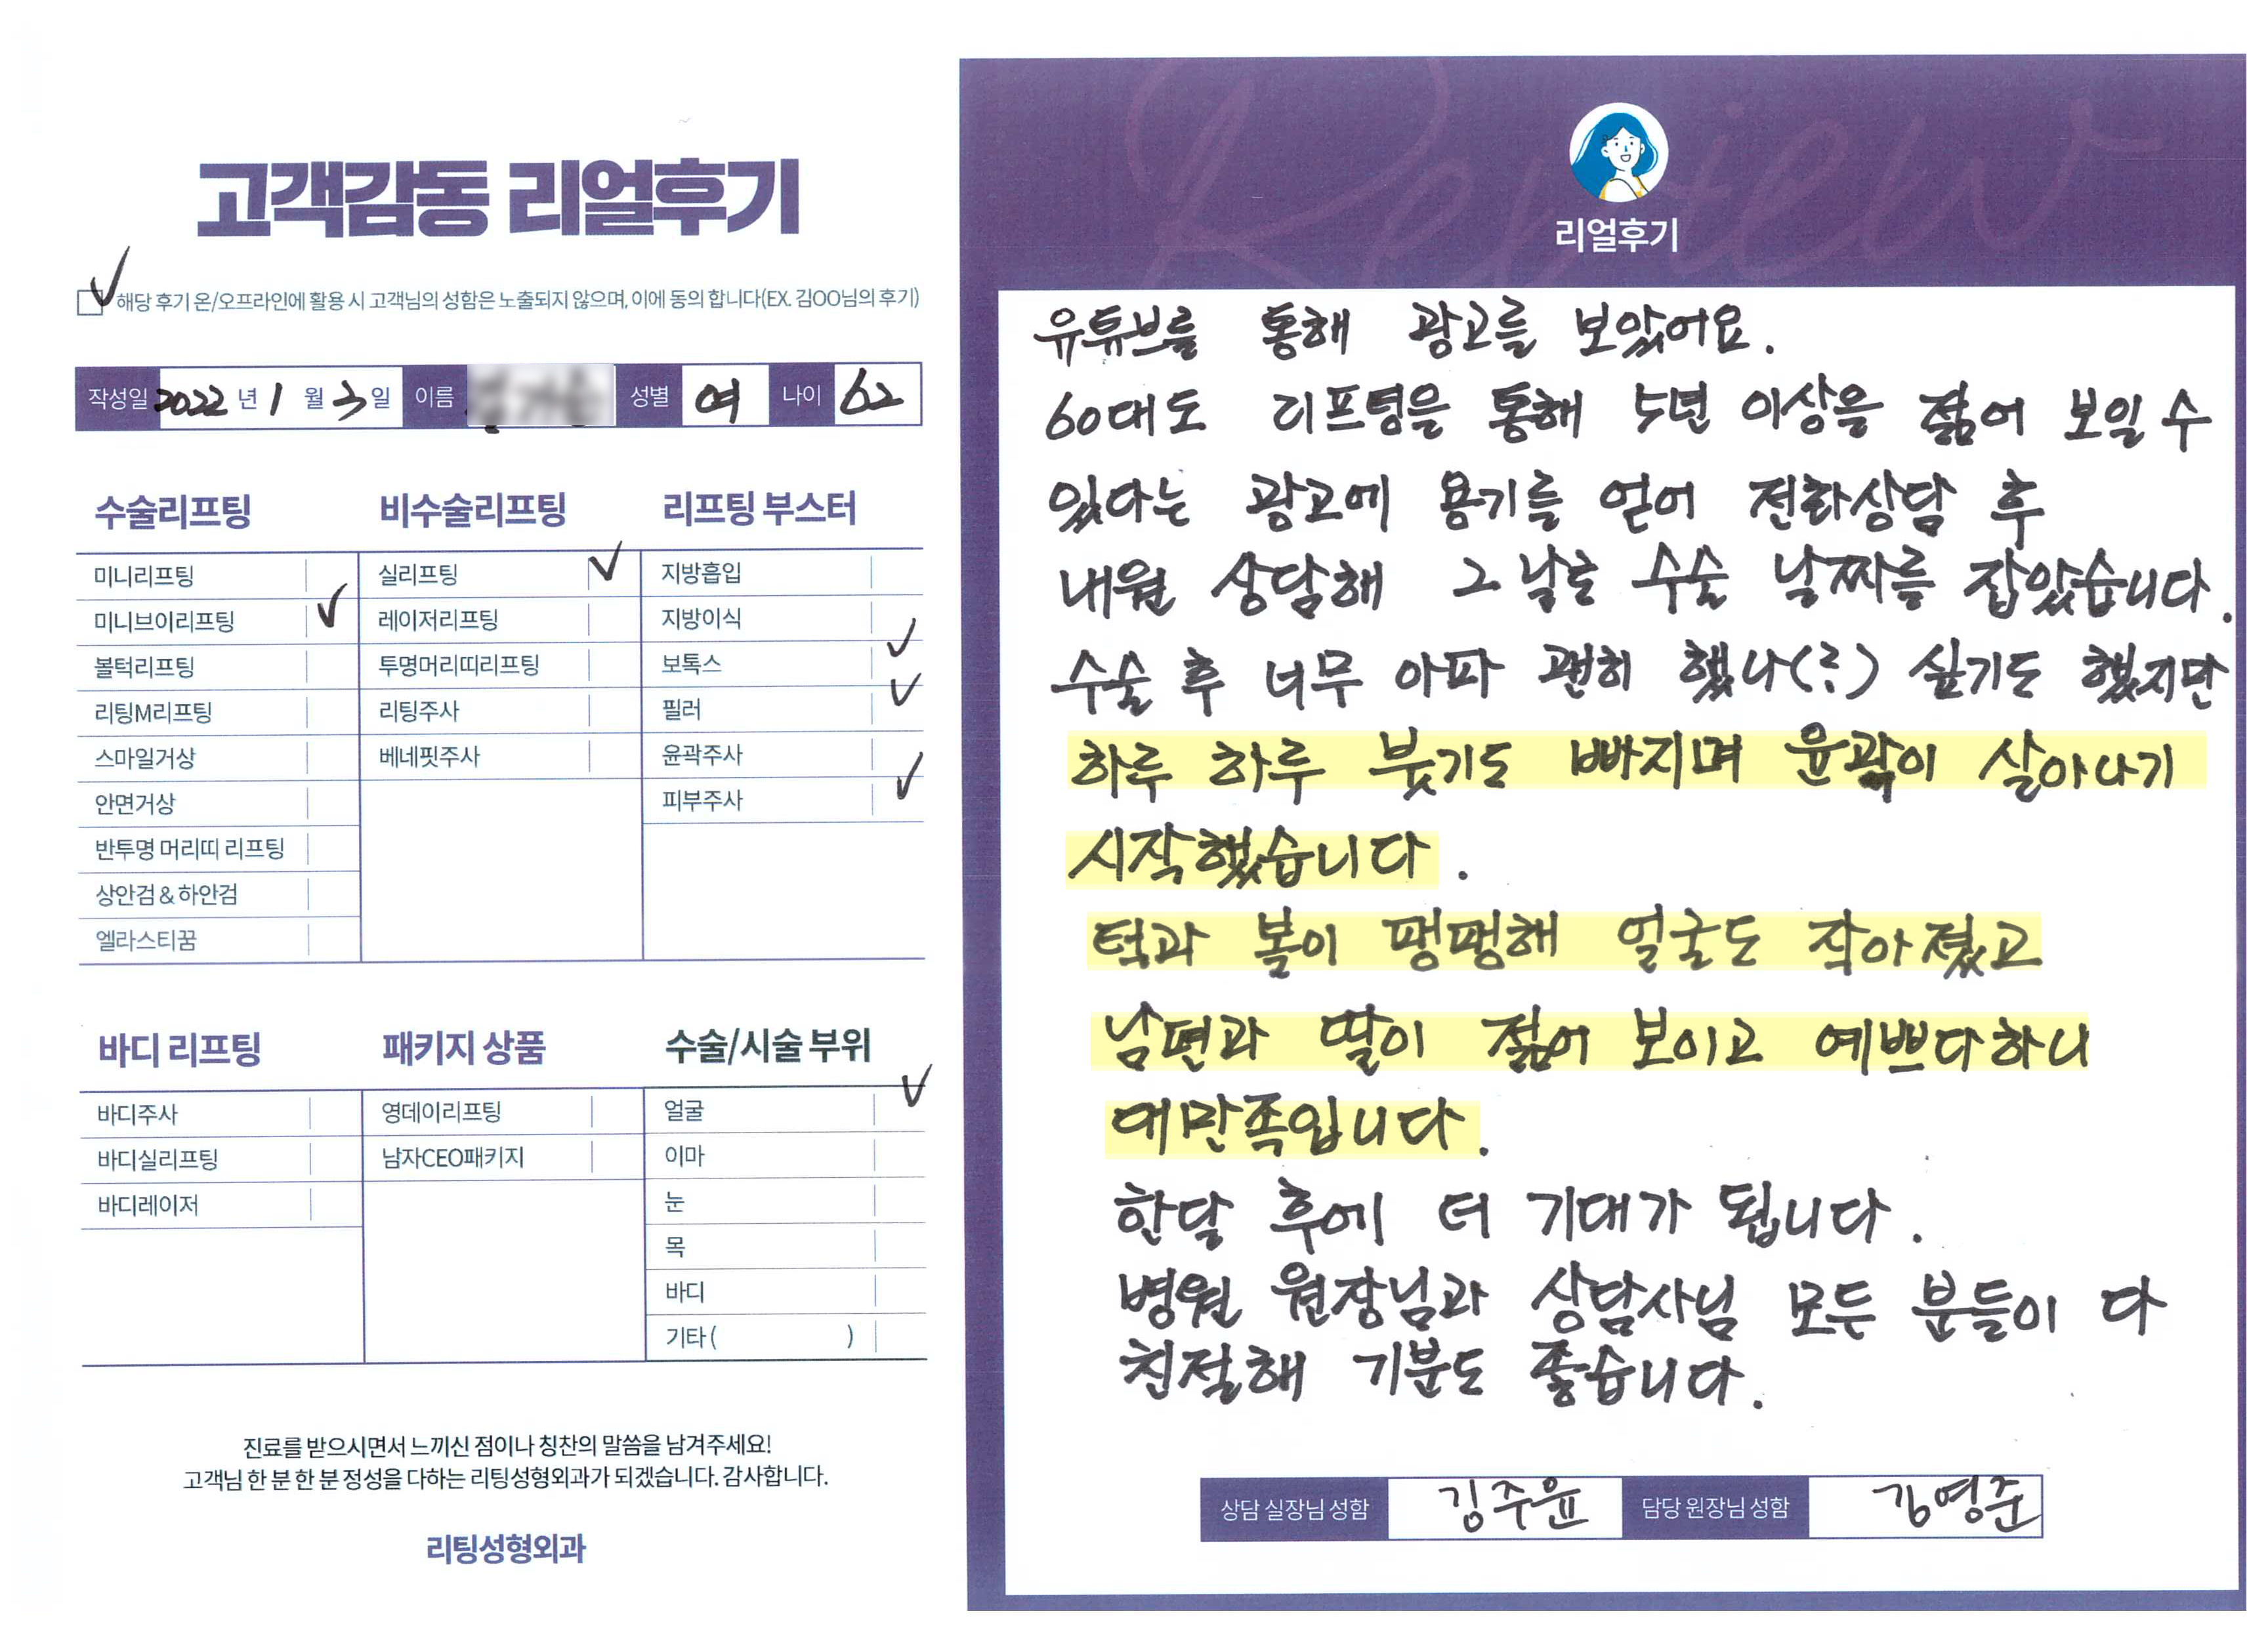 고객감동 리얼후기
해당 후기 온/오프라인에 활용 시 고객님의 성함은 노출되지 않으며, 이에 동의 합니다(EX. 김OO님의 후기)
작성일 2022 년 1 월 3 일 이름 성별 여 나이 62
수술리프팅
미니리프팅
미니브이리프팅
볼턱리프팅
리팅M리프팅
스마일거상
안면거상
반투명 머리띠 리프팅
상안검 & 하안검
엘라스티꿈
비수술리프팅
실리프팅
레이저리프팅
투명머리띠리프팅
리팅주사
베네핏주사
리프팅 부스터
지방흡입
지방이식
보톡스
필러
윤곽주사
피부주사
바디 리프팅
바디주사
바디실리프팅
바디레이저
패키지 상품
영데이리프팅
남자CEO패키지
수술/시술 부위
얼굴
이마
눈
목
바디
기타 ( )
진료를 받으시면서 느끼신 점이나 칭찬의 말씀을 남겨주세요!
고객님 한 분 한 분 정성을 다하는 리팅성형외과가 되겠습니다. 감사합니다.
리팅성형외과
Review
리얼후기
유튜브를 통해 광고를 보았어요.
60대도 리프텅을 통해 5년 이상을 젊어 보일 수
있다는 광고에 용기를 얻어 전화상담 후
내원 상담해 그 날로 수술 날짜를 잡았습니다.
수술 후 너무 아파 괜히 했나(?) 싶기도 했지만
하루 하루 붓기도 빠지며 윤곽이 살아나기
시작했습니다.
턱과 볼이 팽팽해 얼굴도 작아졌고
남편과 딸이 젊어 보이고 예쁘다하니
대만족입니다.
한달 후에 더 기대가 됩니다.
병원 원장님과 상담사님 모든 분들이 다
친절해 기분도 좋습니다.
상담 실장님 성함 김주윤 담당 원장님 성함 김영준